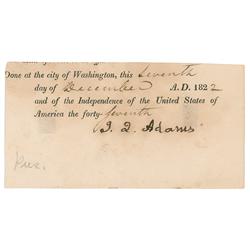 Done at the city of Washington, this Seventh
day of December A.D. 1822
and of the Independence of the United States of
America the forty-seventh
J. Q. Adams
Pres.